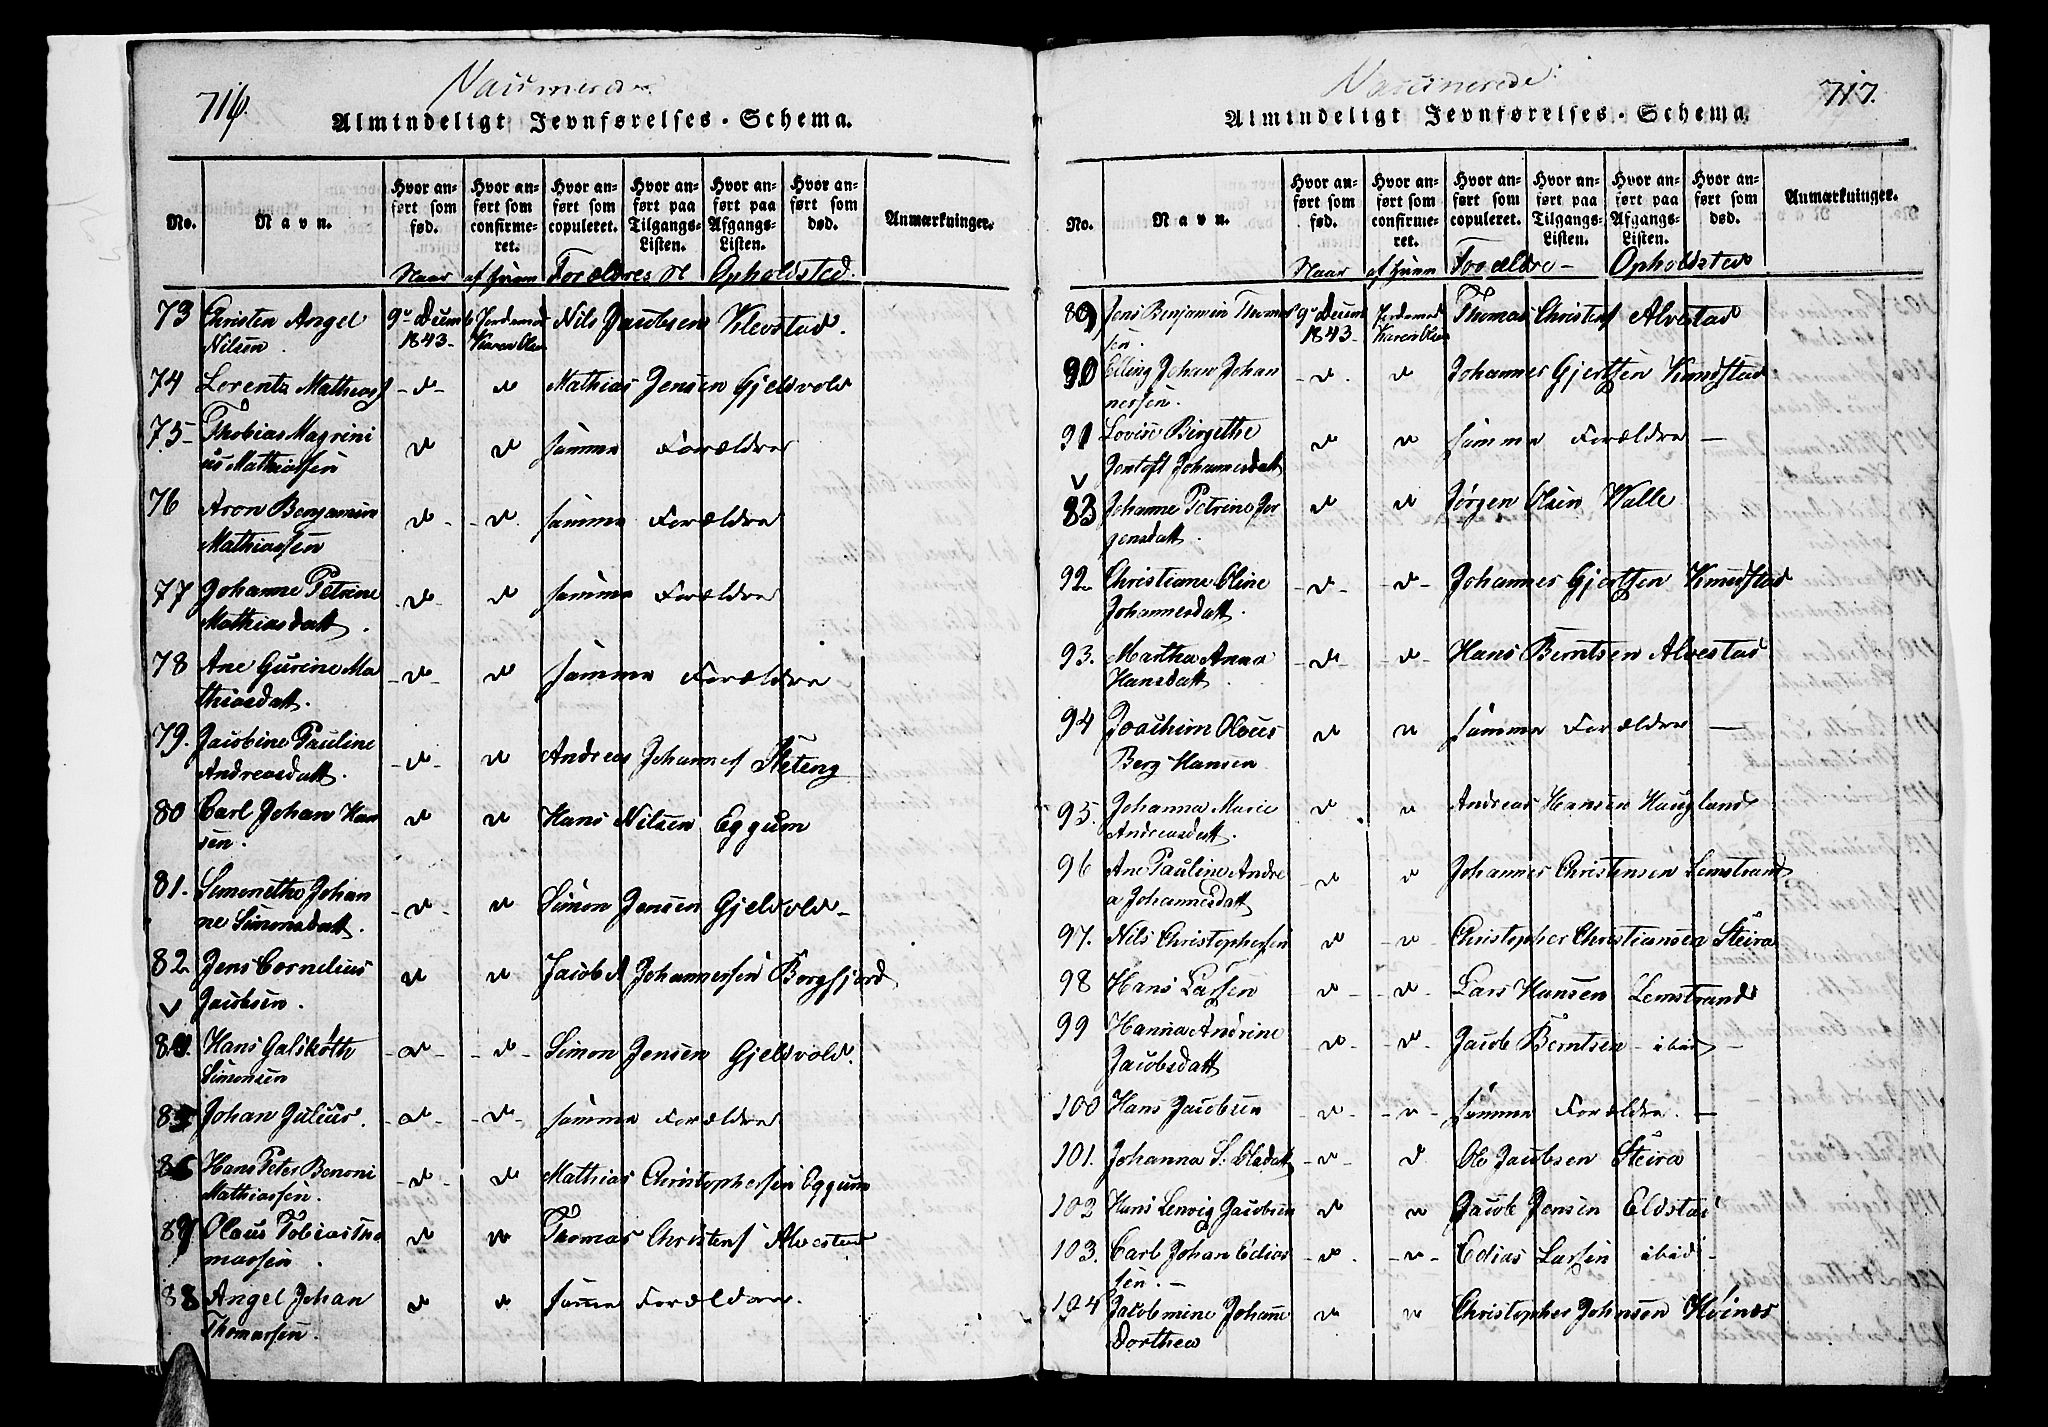 716.
Vaccinerede
Almindeligt Jevnførelses-Schema.
No. Navn. Hvor anført som fød. Hvor anført som confirmeret. Hvor anført som copuleret. Hvor anført paa Tilgangs-Listen. Hvor anført paa Afgangs-Listen. Hvor anført som død. Anmærkninger.
Naar af hvem Forældres Opholdsted.
73 Christen Angel 9de Decemb Jordemod Nils Jacobsen Klevstad.
Nilsen. 1843- Karen Olsen
74 Lorentz Mathiass -d- d Mathias Jensen Gjeldvold
75- Thobias Magrini d d samme Forældre
us Mathiassen
76 Aron Benjamin d- -d. samme Forældre
Mathiassen
77 Johanne Petrine -d- d samme Forældre
Mathiasdatt.
78 Ane Gurine Ma -d- d samme Forældre
thiasdatt.
79. Jacobine Pauline -d- d Andreas Johanness Steteng
Andreasdatt.
80 Carl Johan Han d d Hans Nilsen Eggum
sen.
81. Simonethe Johan -d- d Simon Jensen Gjeldvold-
ne Simonsdatt.
82 Jens Cornelius d d Jacob A Johannessen Borgfjord
v Jacobsen.
84. Hans Galskøth -d- -d- Simon Jensen Gjeldvold.
Simonsen
85 Johan Julius. -d- -d- samme Forældre
86 Hans Peter Benoni -d- d Mathias Christophersen Eggum
Mathiassen.
87 Olaus Tobias Tho d d Thomas Christens Alvestad
massen.
88 Angel Johan d d samme Forældre.
Thomassen.
717.
Vaccinerede
Almindeligt Jevnførelses-Schema.
No. Navn. Hvor anført som fød. Hvor anført som confirmeret. Hvor anført som copuleret. Hvor anført paa Tilgangs-Listen. Hvor anført paa Afgangs-Listen. Hvor anført som død. Anmærkninger.
Naar af hvem Forældre- Opholdsted
89 Jens Benjamin Thomas 9de Decem Jordemod Thomas Christens Alvestad
sen. 1843- Karen Olsen
90 Elling Johan Johan -d. d Johannes Gjertsen Knudstad
nessen.
91 Lovise Birgethe d d samme Forældre -
Jentoft Johannesdatt
v
83 Johanne Petrine Jør d d Jørgen Olsen Walle
gensdatt.
92 Christiane Oline -d- -d- Johannes Gjertsen Knudstad
Johannesdatt.
93. Martha Anna -d- -d- Hans Berntsen Alvestad
Hansdatt.
94 Joachim Olaus d d samme Forældre -
Berg Hansen
95. Johanna Marie d d Andreas Hansen Haugland
Andreasdatt.
96 Ane Pauline Andre -d d Johannes Christensen Lemstrand
a Johannesdatt
97. Nils Christophersen d -d Christopher Christiansen Steira
98 Hans Larsen d- -d- Lars Hansen Lemstrand
99 Hanna Andrine d- -d- Jacob Berntsen - ibid -
Jacobsdatt
100 Hans Jacobsen -d- -d- samme Forældre. -
101. Johanna S. Olsdatt -d- d Ole Jacobsen Steira
102 Hans Lenvig Jacobsen d d Jacob Jensen Eldstad
103. Carl Johan Edias d. -d- Edias Larsen ibid -
sen. -
104 Jacobmine Johanne d d Christopher Johnsen Høines
Dorthea